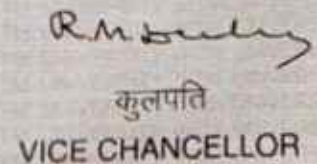 कुलपति
VICE CHANCELLOR